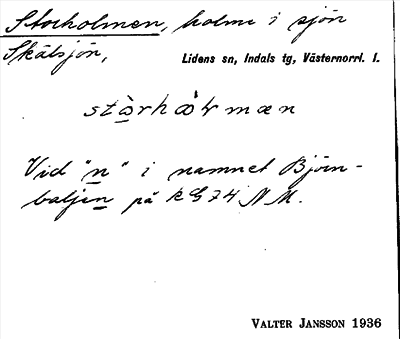 Storholmen, holme i sjön
Skälsjön,
Lidens sn, Indals tg, Västernorrl. l.
stò̲rhæ̀ɬmæn
Vid "n" i namnet Björn-
baljen på RG 74 NM.
VALTER JANSSON 1936